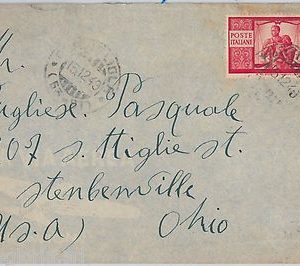 POSTE
ITALIANE
15.12.49
M.
ugliese Pasquale
07 s. Higlie st.
stenbenville
U.S.A) Ohio